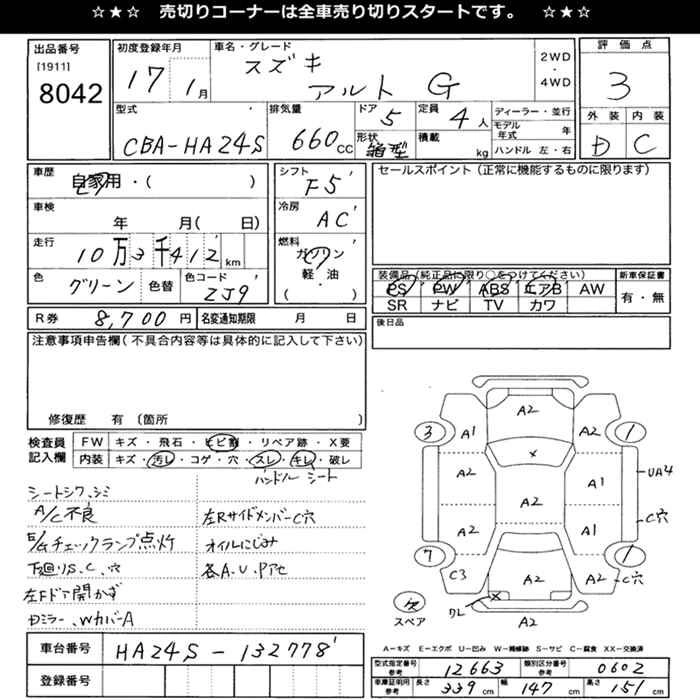 ☆★☆ 売切りコーナーは全車売り切りスタートです。 ☆★☆
出品番号
[1911]
8042
初度登録年月
17 1月
車名・グレード
スズキ
アルト G
2WD
・
4WD
評価点
3
外装 内装
D C
型式
CBA-HA24S
排気量
660cc
ドア
5
形状
箱型
定員
4人
積載
kg
ディーラー・並行
モデル年式 年
ハンドル 左・右
車歴
自家用・( )
車検
年 月( 日)
走行
10万3千412km
色
グリーン
色替
色コード
ZJ9
シフト
F5
冷房
AC
燃料
ガソリン
軽・油
( ・ )
セールスポイント(正常に機能するものに限ります)
装備品(純正品に限り○をつけてください)
PS PW ABS エアB AW
SR ナビ TV カワ
新車保証書
有・無
R券 8,700円 名変通知期限 月 日
後日品
注意事項申告欄(不具合内容等は具体的に記入して下さい)
修復歴 有 (箇所 )
検査員
記入欄
FW キズ・飛石・ヒビ割・リペア跡・X要
内装 キズ・汚レ・コゲ・穴・スレ・キレ・破レ
ハンドル シート
シートシワ、シミ
A/C不良
E/Gチェックランプ点灯
下回りS、C、穴
左Fドア開かず
Dミラー、WカバーA
左RサイドメンバーC穴
オイルにじみ
各A、U、Pアセ
車台番号 HA24S-132778
登録番号
A2
3 A1 A2 1
×
A2 A1 UA4
A2
A2 A1 C穴
7 1
C3 A2 A2 C穴
×
ワレ
A2
欠
スペア
A=キズ E=エクボ U=凹み W=補修跡 S=サビ C=腐食 XX=交換済
型式指定番号
参考
12663
類別区分番号
参考
0602
車庫証明用
参考
長さ 339cm 幅 147cm 高さ 151cm